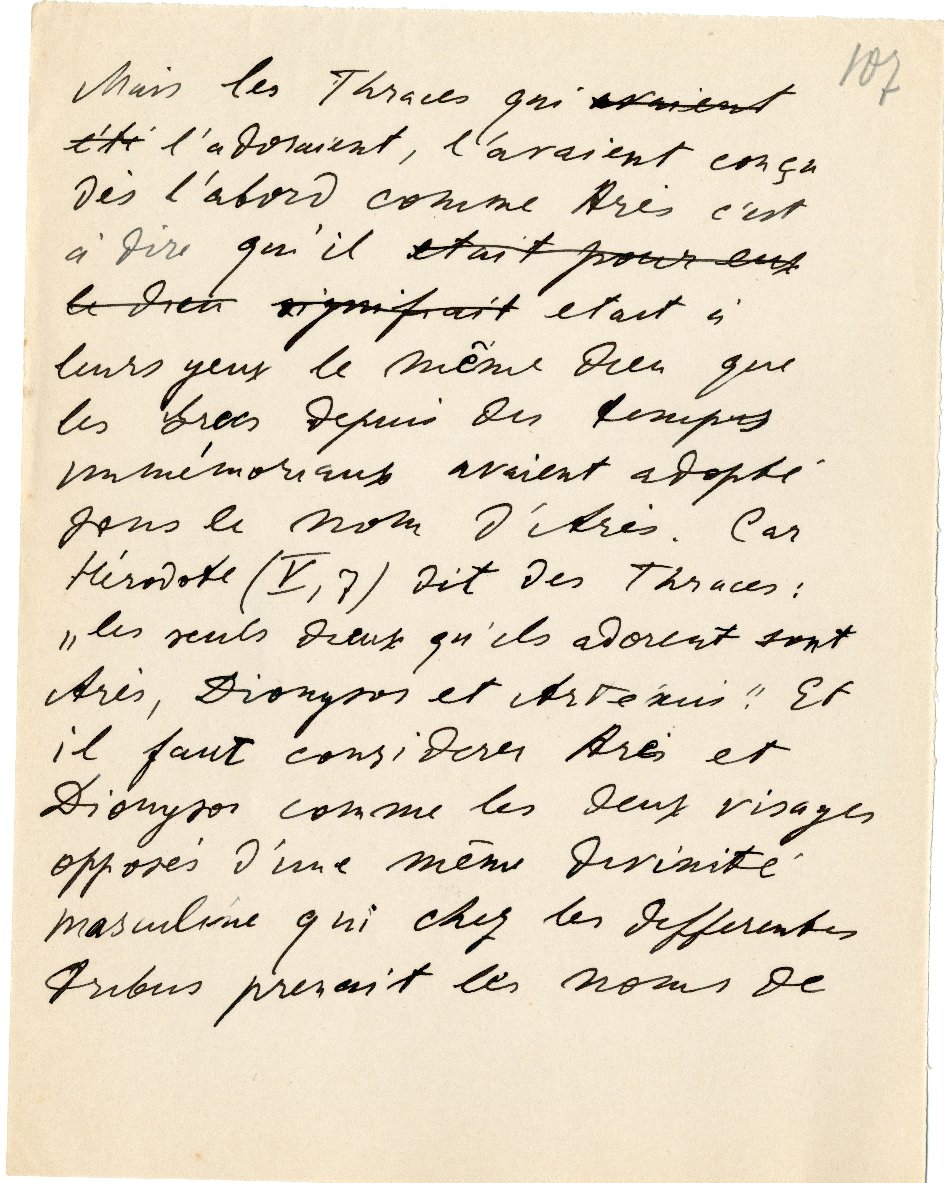 107
Mais les Thraces qui avaient
été l'adoraient, l'avaient conçu
dès l'abord comme Arès c'est
à dire qu'il etait pour eux
le dieu signifiait etait à
leurs yeux le même dieu que
les Grecs depuis des temps
immémoriaux avaient adopté
sous le nom d'Arès. Car
Hérodote (V, 7) dit des Thraces:
„les seuls dieux qu'ils adorent sont
Arès, Dionysos et Artémis“. Et
il faut considerer Arès et
Dionysos comme les deux visages
opposés d'une même divinité
masculine qui chez les differentes
tribus prenait les noms de